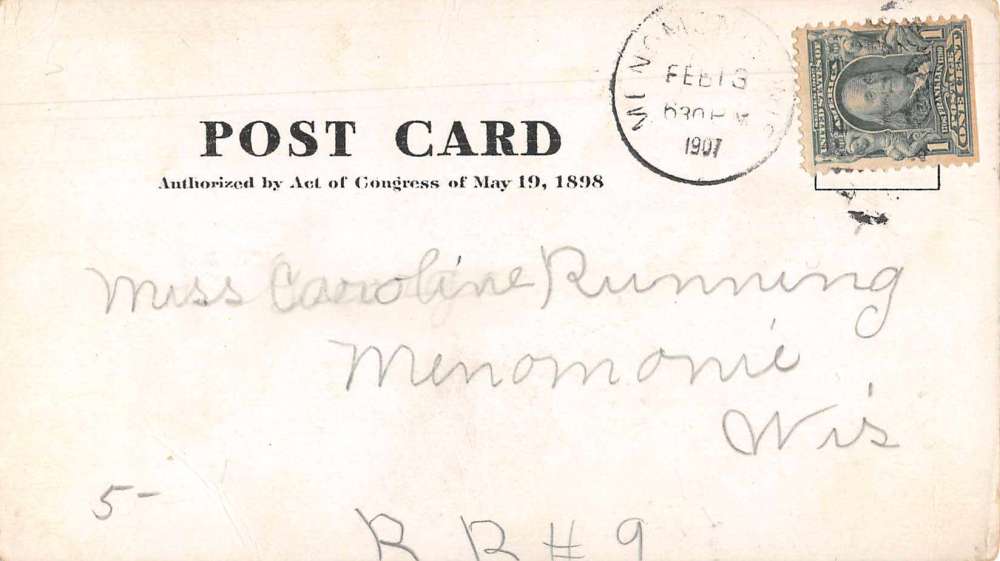 POST CARD
Authorized by Act of Congress of May 19, 1898
FEB 13
630 P M
1907
1 ONE CENT 1
Miss Caroline Running
Menomonie
Wis
5-
R R # 9